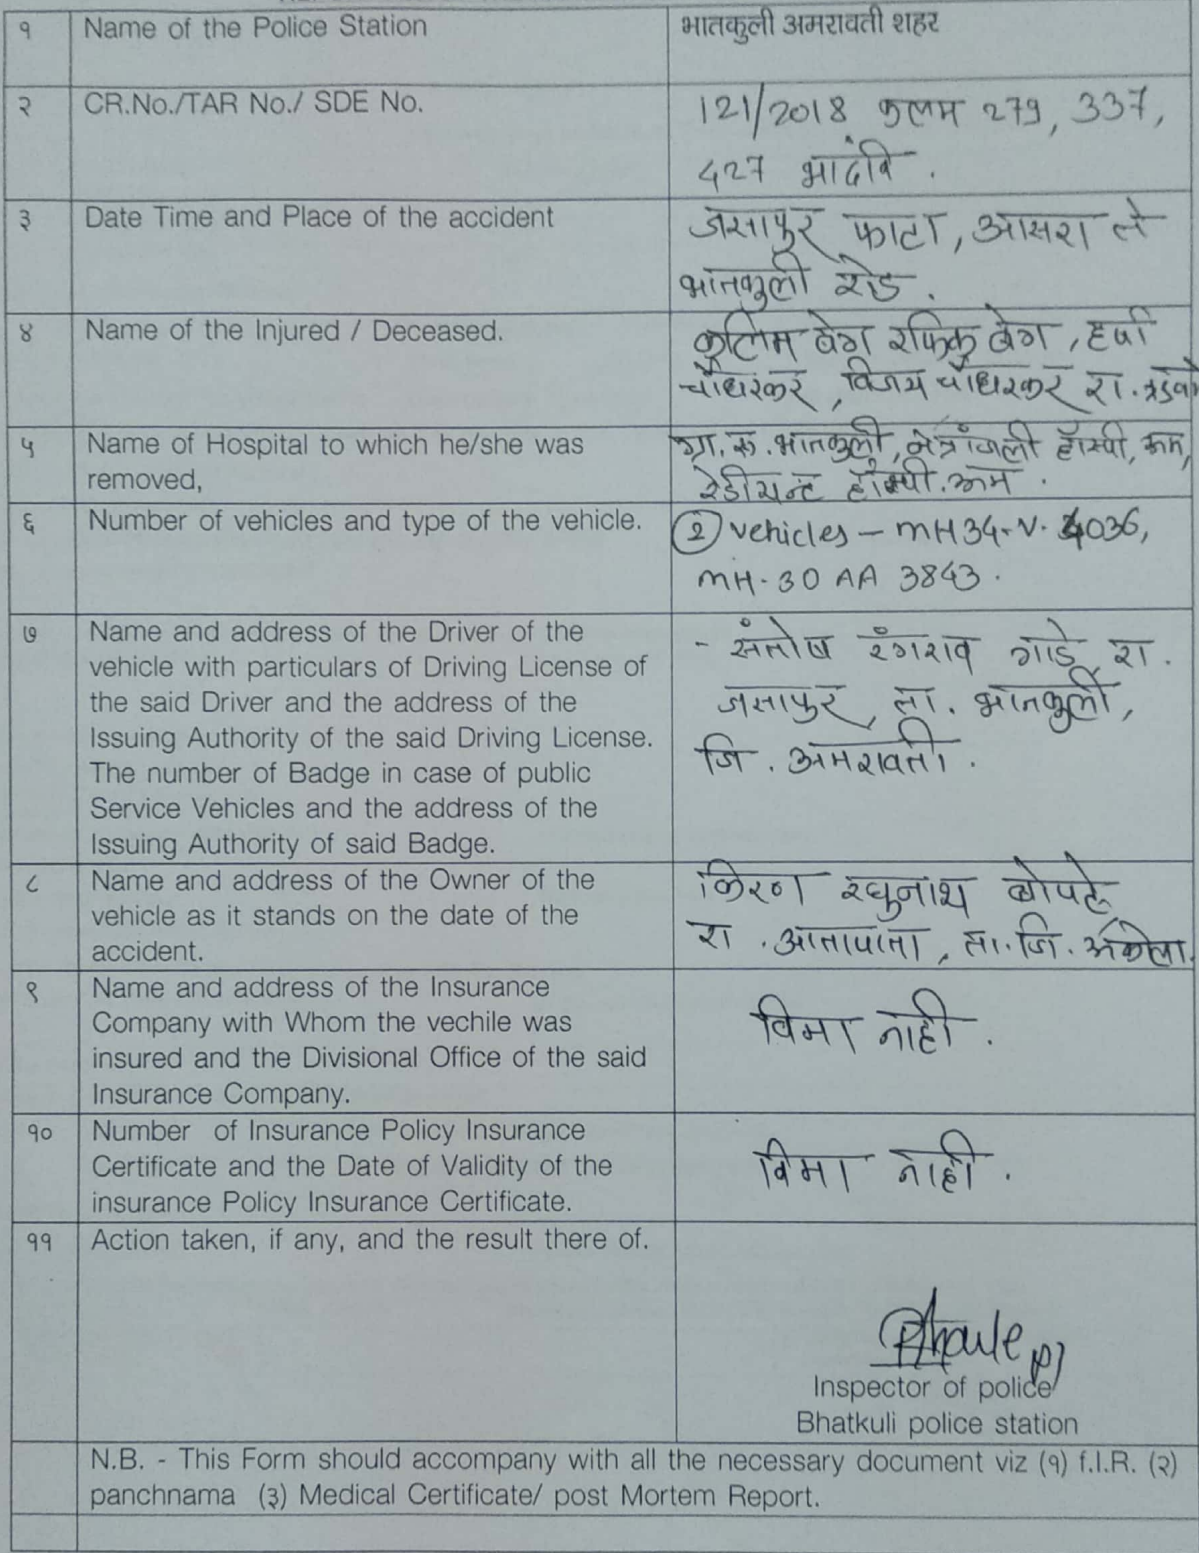 १ Name of the Police Station भातकुली अमरावती शहर
२ CR.No./TAR No./ SDE No. 121/2018 कलम 279, 337,
427 भादंवि.
३ Date Time and Place of the accident जसापुर फाटा, आसरा ते
भातकुली रोड.
४ Name of the Injured / Deceased. बेग रफिक बेग, हर्षा
चौधरकर, विजय चौधरकर रा.
५ Name of Hospital to which he/she was ग्रा. रु. भातकुली, नेत्रांजली हॉस्पी, अम,
removed, रेडीयन्ट हॉस्पी. अम.
६ Number of vehicles and type of the vehicle. (2) vehicles – MH34-V-4036,
MH-30 AA 3843.
७ Name and address of the Driver of the - संतोष रंगराव गाडे रा.
vehicle with particulars of Driving License of
the said Driver and the address of the जसापुर, ता. भातकुली,
Issuing Authority of the said Driving License. जि. अमरावती.
The number of Badge in case of public
Service Vehicles and the address of the
Issuing Authority of said Badge.
८ Name and address of the Owner of the किरण रघुनाथ बोपटे
vehicle as it stands on the date of the
accident. रा. आतापाता, ता. जि. अकोला.
९ Name and address of the Insurance
Company with Whom the vechile was विमा नाही.
insured and the Divisional Office of the said
Insurance Company.
१० Number of Insurance Policy Insurance
Certificate and the Date of Validity of the विमा नाही.
insurance Policy Insurance Certificate.
११ Action taken, if any, and the result there of.
Inspector of police
Bhatkuli police station
N.B. - This Form should accompany with all the necessary document viz (१) f.I.R. (२)
panchnama (३) Medical Certificate/ post Mortem Report.